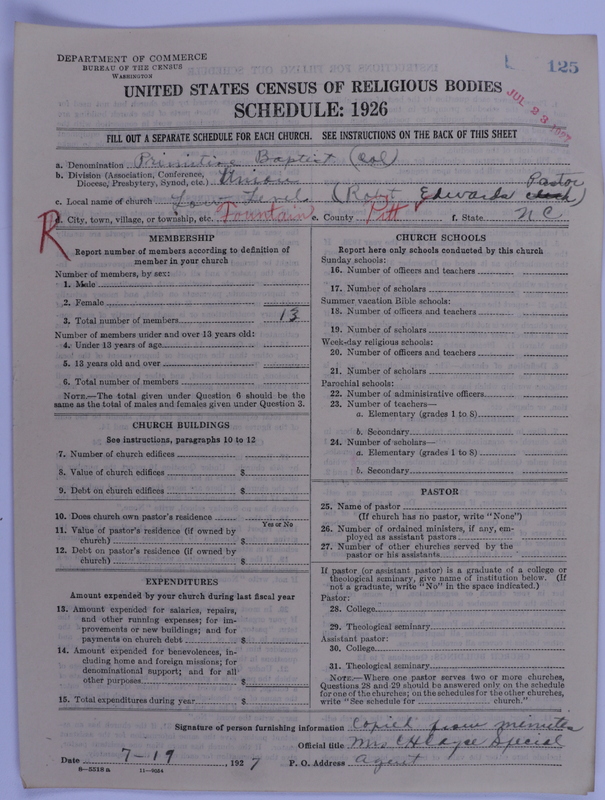 DEPARTMENT OF COMMERCE
BUREAU OF THE CENSUS
WASHINGTON
125
UNITED STATES CENSUS OF RELIGIOUS BODIES
SCHEDULE: 1926
JUL 23 1927
FILL OUT A SEPARATE SCHEDULE FOR EACH CHURCH. SEE INSTRUCTIONS ON THE BACK OF THIS SHEET
a. Denomination Primitive Baptist (col)
b. Division (Association, Conference,
Diocese, Presbytery, Synod, etc.) Union
Pastor
c. Local name of church (Robt Edwards clerk)
R
d. City, town, village, or township, etc. Fountain e. County Pitt f. State N C
MEMBERSHIP
Report number of members according to definition of
member in your church
Number of members, by sex:
1. Male
2. Female
3. Total number of members 13
Number of members under and over 13 years old:
4. Under 13 years of age
5. 13 years old and over
6. Total number of members
NOTE.—The total given under Question 6 should be the
same as the total of males and females given under Question 3.
CHURCH BUILDINGS
See instructions, paragraphs 10 to 12
7. Number of church edifices
8. Value of church edifices $
9. Debt on church edifices $
10. Does church own pastor's residence
Yes or No
11. Value of pastor's residence (if owned by
church) $
12. Debt on pastor's residence (if owned by
church) $
EXPENDITURES
Amount expended by your church during last fiscal year
13. Amount expended for salaries, repairs,
and other running expenses; for im-
provements or new buildings; and for
payments on church debt $
14. Amount expended for benevolences, in-
cluding home and foreign missions; for
denominational support; and for all
other purposes $
15. Total expenditures during year $
CHURCH SCHOOLS
Report here only schools conducted by this church
Sunday schools:
16. Number of officers and teachers
17. Number of scholars
Summer vacation Bible schools:
18. Number of officers and teachers
19. Number of scholars
Week-day religious schools:
20. Number of officers and teachers
21. Number of scholars
Parochial schools:
22. Number of administrative officers
23. Number of teachers—
a. Elementary (grades 1 to 8)
b. Secondary
24. Number of scholars—
a. Elementary (grades 1 to 8)
b. Secondary
PASTOR
25. Name of pastor
(If church has no pastor, write "None")
26. Number of ordained ministers, if any, em-
ployed as assistant pastors
27. Number of other churches served by the
pastor or his assistants
If pastor (or assistant pastor) is a graduate of a college or
theological seminary, give name of institution below. (If
not a graduate, write "No" in the space indicated.)
Pastor:
28. College
29. Theological seminary
Assistant pastor:
30. College
31. Theological seminary
NOTE.—Where one pastor serves two or more churches,
Questions 28 and 29 should be answered only on the schedule
for one of the churches; on the schedules for the other churches,
write "See schedule for church."
Signature of person furnishing information Copied from minutes
Official title Mrs C H Cayce Special
Date 7-19, 1927 P. O. Address Agent
8-5518a 11-9534